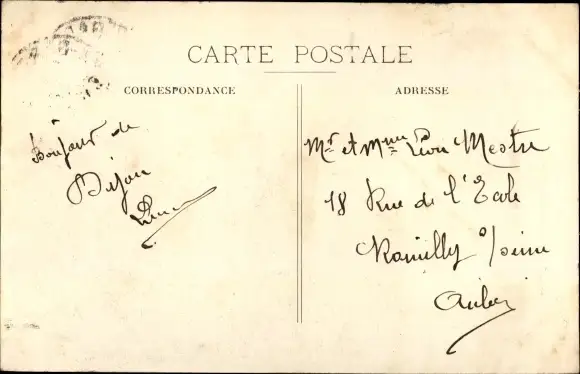 CARTE POSTALE
CORRESPONDANCE
ADRESSE
Bonjour de
Dijon
Mr et Mme Léon Mestre
18 Rue de l'Ecole
Romilly s/seine
Aube